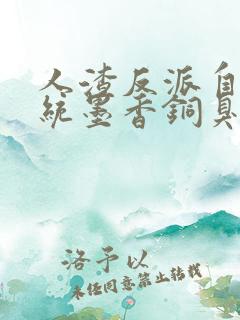 人渣反派自
統墨香銅臭
洛予以
未经同意禁止转载